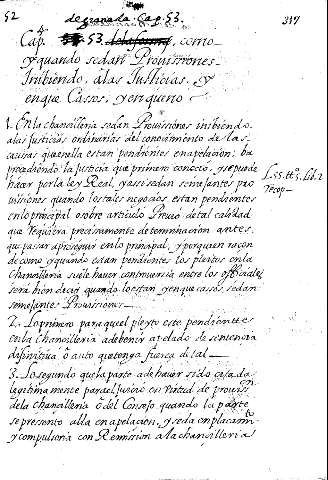 52
de granada. Cap. 53.
317
Cap. 53. de la forma, como
y quando se dan Provissiones
Inibiendo, a las Justicias, y
en que Casos, y en que no
1. En la chancilleria se dan Provissiones inibiendo
a las justicias ordinarias del conocimiento de las
causas que en ella estan pendientes en apelacion;
procediendo la Justicia que primero conocio, y se puede
hacer por la ley Real, y assi se dan semejantes pro
visiones quando los tales negocios, estan pendientes
en lo principal o sobre articulo Previo de tal calidad
que requiera precissamente determinacion antes
que passar a proseguir en lo principal, y porque en razon
de como y quando estan pendientes los pleitos en la
Chancilleria suele haver controversia entre los officiales
será bien decir quando lo estan y en que casos se dan
semejantes Provissiones
L. 55. tt. 5. Lib. 2
recop
2. Lo primero para que el pleyto este pendiente
en la Chancilleria a de venir apelado de sentencia
difinitiva o auto que tenga fuerca de tal
3. Lo segundo que la parte a de haver sido citada
legitimamente para el Juicio en virtud de provision
de la chancilleria o del Consejo quando la parte
se presento alla en apelacion, y se da emplacamto
y compulsoria con Remission a la chancilleria